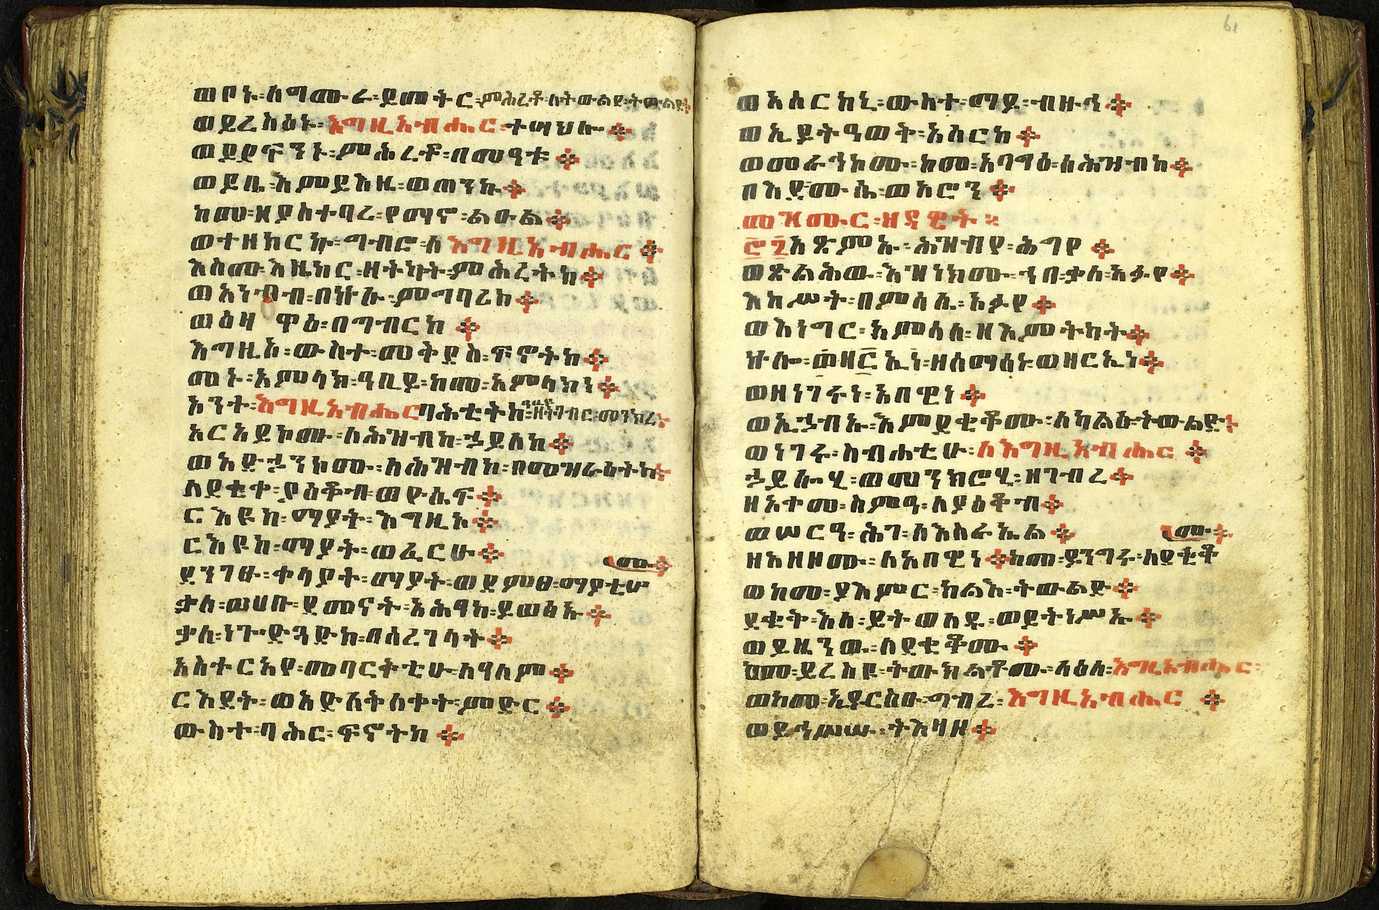 ወቦኑ፡ለግሙራ፡ይመትር፡ምሕረቶ፡ለትውልደ፡ትውልድ፨
ወይረስዕኑ፡እግዚአብሔር፡ተሣህሎ፨
ወይደፍንኑ፡ምሕረቶ፡በመዓቱ፨
ወይቤ፡እምይእዜ፡ወጠንኩ፨
ከመ፡ዘያስተባረ፡የማኖ፡ልዑል፨
ወተዘከርኩ፡ግብሮ፡ለእግዚአብሔር፨
እስመ፡እዜከር፡ዘትካት፡ምሕረትከ፨
ወአነብብ፡በኵሉ፡ምግባሪከ፨
ወዕዛዋዕ፡በግብርከ፨
እግዚአ፡ውስተ፡መቅደስ፡ፍኖትከ፨
መኑ፡አምላክ፡ዓቢይ፡ከመ፡አምላክነ፨
አንተ፡እግዚአብሔር፡ባሕቲትከ፡ዘትገብር፡መንክረ፨
አርአይኮሙ፡ለሕዝብከ፡ኃይለከ፨
ወአድኃንከሙ፡ለሕዝብከ፡በመዝራዕትከ፨
ለደቂቀ፡ያዕቆብ፡ወዮሴፍ፨
ርእዩከ፡ማያት፡እግዚኦ፨
ርእዩከ፡ማያት፡ወፈርሁ፨
ደንገፁ፡ቀላያተ፡ማያት፡ወደምፀ፡ማያቲሆሙ፨
ቃለ፡ወሀቡ፡ደመናት፡አሕፃከ፡ይወፅኡ፨
ቃለ፡ነጐድጓድከ፡በሰረገላት፨
አስተርአየ፡መባርቅቲሁ፡ለዓለም፨
ርእደት፡ወአድለቅለቀት፡ምድር፨
ውስተ፡ባሕር፡ፍኖትከ፨
61
ወአሰርከኒ፡ውስተ፡ማይ፡ብዙኅ፨
ወኢይትዓወት፡አሰርከ፨
ወመራኅኮሙ፡ከመ፡አባግዕ፡ለሕዝብከ፨
በእደ፡ሙሴ፡ወአሮን፨
መዝሙር፡ዘዳዊት፡
አጽምኡ፡ሕዝብየ፡ሕግየ፨
ወጽልሕዉ፡እዝነክሙ፡ኀበ፡ቃለ፡አፉየ፨
እከሥት፡በምሳሌ፡አፉየ፨
ወእነግር፡አምሳለ፡ዘእምትካት፨
ኵሎ፡ዘሰማዕነ፡ወዘርኢነ፨
ወዘነገሩነ፡አበዊነ፨
ወኢኃብኡ፡እምደቂቆሙ፡ለካልዕ፡ትውልድ፨
ወነገሩ፡ስብሐቲሁ፡ለእግዚአብሔር፨
ኃይሎሂ፡ወመንክሮሂ፡ዘገብረ፨
ዘአቀመ፡ስምዓ፡ለያዕቆብ፨
ወሠርዓ፡ሕገ፡ለእስራኤል፨
ዘአዘዞሙ፡ለአበዊነ፨ከመ፡ይንግሩ፡ለደቂቆሙ፨
ወከመ፡ያእምር፡ካልእ፡ትውልድ፨
ደቂቅ፡እለ፡ይትወለዱ፡ወይትነሥኡ፨
ወይዜንዉ፡ለደቂቆሙ፨
ከመ፡ይረስዩ፡ትውክልቶሙ፡ላዕለ፡እግዚአብሔር፡
ወከመ፡ኢይርስዑ፡ግብረ፡እግዚአብሔር፨
ወይኅሥሡ፡ትእዛዘ፨